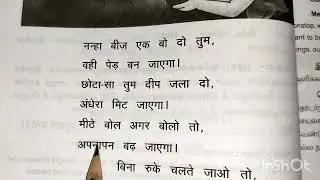 नन्हा बीज एक बो दो तुम,
वही पेड़ बन जाएगा।
छोटा-सा तुम दीप जला दो,
अंधेरा मिट जाएगा।
मीठे बोल अगर बोलो तो,
अपनापन बढ़ जाएगा।
बिना रुके चलते जाओ तो,
InShot